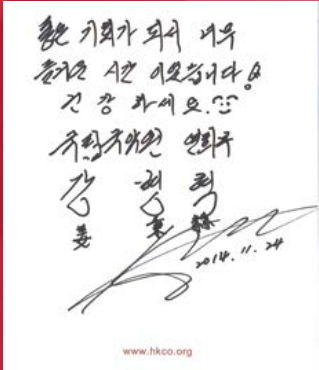 좋은 기회가 되서 너무
즐거운 시간 이었습니다
건강 하세요.
국립국악원 연희부
강
姜
2014. 11. 24
www.hkco.org